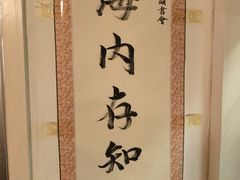 海内存知
書會